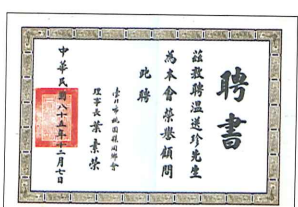 聘書
茲敦聘溫送珍先生
為本會榮譽顧問
此聘
臺北市桃園縣同鄉會
理事長葉素榮
中華民國八十五年十二月七日